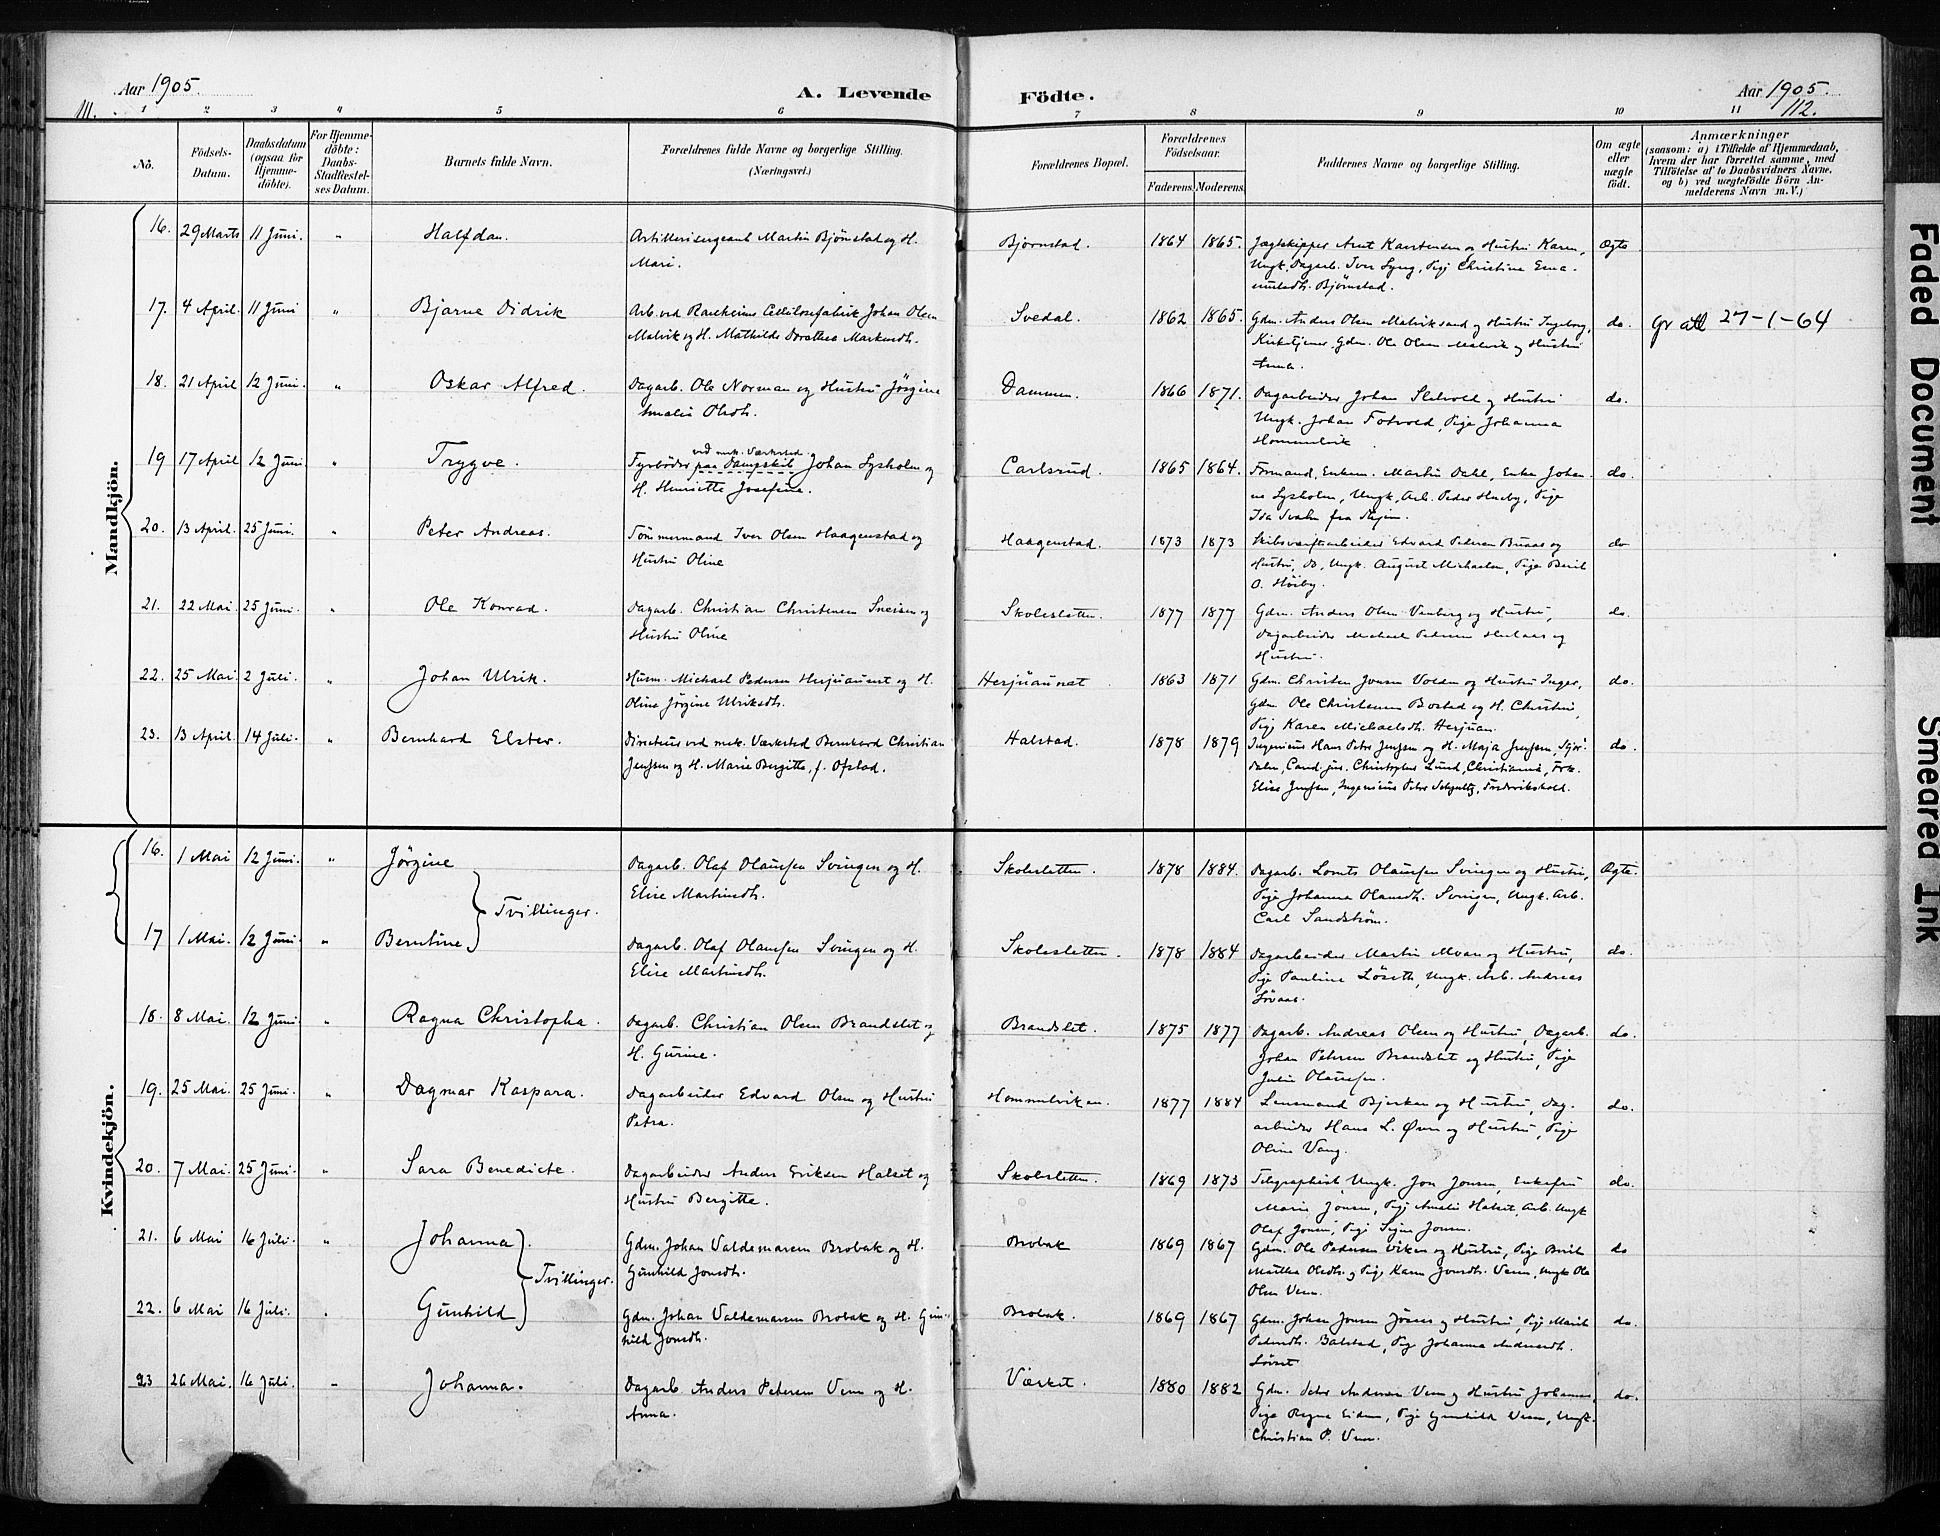 Aar 1905.
A. Levende Födte.
Aar 1905.
111.
112.
1 2 3 4 5 6 7 8 9 10 11
No.
Födsels-Datum.
Daabsdatum (ogsaa for Hjemme-döbte).
For Hjemme-döbte: Daabs-Stadfæstel-ses Datum.
Barnets fulde Navn.
Forældrenes fulde Navne og borgerlige Stilling. (Næringsvei.)
Forældrenes Bopæl.
Forældrenes Födselsaar.
Faderens. Moderens.
Faddernes Navne og borgerlige Stilling.
Om ægte eller uægte födt.
Anmærkninger
(saasom: a) i Tilfælde af Hjemmedaab,
hvem der har forrettet samme, med
Tilföielse af to Daabsvidners Navne,
og b) ved uægtefödte Börn An-
melderens Navn m. V.)
Mandkjön.
16. 29 Marts 11 Juni. " Halfdan. Artillerisergeant Martin Bjørnstad og H. Bjørnstad. 1864 1865. Jægtskipper Arnt Karstensen og Hustru Karen, Ægte
Mari. Ungk. Dagarb. Iver Lyng, Pige Christine
Bjørnstad.
17. 4 April. 11 Juni " Bjarne Didrik Arb. ved Ranheims Cellulosefabrik Johan Olsen Svedal. 1862 1865. Gdm. Anders Olsen Malviksand og Hustru Ingeborg, do. Gr att 27-1-64
Malvik og H. Mathilde Dorothea Markusdt. Kirketjener, Gdm. Ole Olsen Malvik og Hustru
Anna.
18. 21 April 12 Juni. " Oskar Alfred. Dagarb. Ole Norman og Hustru Jörgine Dammen. 1866 1871. Dagarbeider Johan og Hustru do.
Amalie Olsdt. Ungk. Johan Fotvold, Pige Johanna
Hommelvik
19 17 April 12 Juni " Trygve. Fyrböder paa Dampskib ved mek. Værksted. Johan Lysholm og Carlsrud. 1865 1864. Formand, Enkem. Martin Dahl, Enke Johan- do.
H. Henriette Josefine. ne Lysholm, Ungk. Arb. Peder Huseby, Pige
Ida Svahn fra
20. 13 April. 25 Juni. " Peter Andreas. Tömmermand Iver Olsen Haagenstad og Haagenstad. 1873 1873 Skibsværftsarbeider Edvard Pedersen Buaas og do
Hustru Oline Hustru, do, Ungk. August Michaelsen, Pige Berit
O. Höiby.
21. 22 Mai. 25 Juni. " Ole Konrad. Dagarb. Christian Christensen Sneisen og Skolesletten. 1877 1877 Gdm. Anders Olsen Venberg og Hustru, do.
Hustru Oline Dagarbeider Michael Petersen og
Hustru.
22. 25 Mai 2 Juli. " Johan Ulrik. Husm. Michael Pedersen Herjuaunet og H. Herjuaunet 1863 1871 Gdm. Christen Jonsen Volden og Hustru Inger, do.
Oline Jörgine Ulriksdt. Gdm. Ole Christensen Bostad og H. Christine,
Pige Karen Michaelsdt. Herjuan.
23. 13 April. 14 Juli. " Bernhard Elster. Directeur ved mek. Værksted Bernhard Christian Halstad. 1878 1879 Ingeniør Hans Peter Jenssen og H. Maja Jenssen, Stjör- do.
Jenssen og H. Marie Bergitte, f. Ofstad. dalen, Cand. jur. Christopher Lund, Christiania, Frk.
Elise Jenssen, Ingeniør Peter Schjultz, Frederikshald.
Kvindekjön.
16. 1 Mai 12 Juni. " Jørgine Dagarb. Olaf Olaussen Svingen og H. Skolesletten. 1878 1884. Dagarb. Lorents Olaussen Svingen og Hustru, Ægte.
Tvillinger. Elise Martinsdt. Pige Johanna Olausdt. Svingen, Ungk. Arb.
Carl Sandström.
17 1 Mai. 12 Juni. " Berntine Dagarb. Olaf Olaussen Svingen og H. Skolesletten. 1878 1884 Dagarbeider Martin Moan og Hustru, do.
Elise Martinsdt. Pige Pauline Löseth, Ungk. Arb. Andreas
18. 8 Mai. 12 Juni. " Ragna Christopha. Dagarb. Christian Olsen Brandslet og Brandslet. 1875 1877 Dagarb. Andreas Olsen og Hustru, Dagarb. do.
H. Gurine. Johan Petersen Brandslet og Hustru, Pige
Julie Olaussen.
19. 25 Mai. 25 Juni. " Dagmar Kaspara. Dagarbeider Edvard Olsen og Hustru Hommelviken. 1877 1884 Lensmand Bjerkan og Hustru, Dag- do.
Petra. arbeider Hans L. Øren og Hustru, Pige
Oline Vang.
20. 7 Mai. 25 Juni. " Sara Benedicte. Dagarbeider Anders Eriksen Halset og Skolesletten. 1869 1873 Telegraphist, Ungk. Jon Jonsen, Enkefru do.
Hustru Bergitte. Marie Jonsen, Pige Amalie Halset, Arb. Ungk.
Olaf Jonsen, Pige Signe Jonsen.
21. 6 Mai 16 Juli. " Johanna. Gdm. Johan Valdemarsen Brobak og H. Brobak 1869 1867 Gdm. Ole Pedersen Viken og Hustru, Pige Berit do
Tvillinger. Gunhild Jonsdt. Martha Olsdt. og Pige Karen Jonsdt. Venn, Ungk. Ole
Olsen Venn.
22. 6 Mai 16 Juli. " Gunhild Gdm. Johan Valdemarsen Brobak og H. Gun- Brobak. 1869 1867 Gdm. Johan Jonsen og Hustru, Pige Marit do.
hild Jonsdt. Pedersdt. Balstad, Pige Johanna Andreasdt.
23 26 Mai. 16 Juli. " Johanna. Dagarb. Anders Petersen Venn og H. Værket. 1880 1882 Gdm. Peter Andersen Venn og Hustru Johanna, do.
Anna. Pige Ragna Eidem, Pige Gunhild Venn, Ungk.
Christian P. Venn.
Faded Document
Smeared Ink